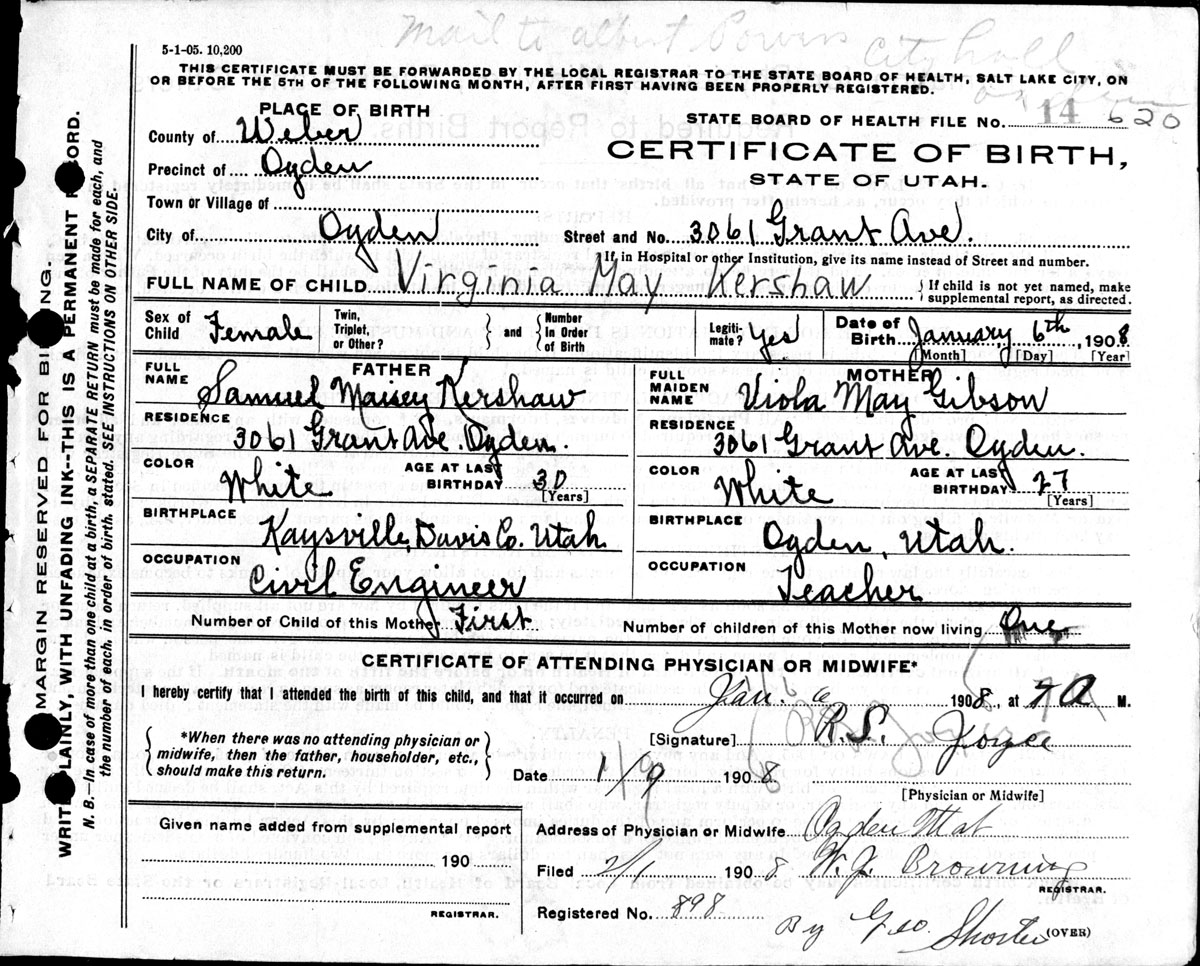 Mail to albert Powers
City hall
Ogden
5-1-05. 10,200
THIS CERTIFICATE MUST BE FORWARDED BY THE LOCAL REGISTRAR TO THE STATE BOARD OF HEALTH, SALT LAKE CITY, ON
OR BEFORE THE 5TH OF THE FOLLOWING MONTH, AFTER FIRST HAVING BEEN PROPERLY REGISTERED.
PLACE OF BIRTH
County of Weber
Precinct of Ogden
Town or Village of
City of Ogden
STATE BOARD OF HEALTH FILE No. 14 620
CERTIFICATE OF BIRTH,
STATE OF UTAH.
Street and No. 3061 Grant Ave.
If in Hospital or other Institution, give its name instead of Street and number.
FULL NAME OF CHILD Virginia May Kershaw { If child is not yet named, make
supplemental report, as directed.
Sex of Child Female Twin, Triplet, or Other? } and { Number In Order of Birth Legiti- mate? Yes Date of Birth January 6th, 1908
[Month] [Day] [Year]
FATHER
FULL NAME Samuel Maisey Kershaw
RESIDENCE
3061 Grant Ave. Ogden.
COLOR White AGE AT LAST BIRTHDAY 30
[Years]
BIRTHPLACE
Kaysville, Davis Co. Utah
OCCUPATION
Civil Engineer
MOTHER
FULL MAIDEN NAME Viola May Gibson
RESIDENCE
3061 Grant Ave. Ogden.
COLOR White AGE AT LAST BIRTHDAY 27
[Years]
BIRTHPLACE
Ogden, Utah.
OCCUPATION
Teacher
Number of Child of this Mother First Number of children of this Mother now living One
CERTIFICATE OF ATTENDING PHYSICIAN OR MIDWIFE*
I hereby certify that I attended the birth of this child, and that it occurred on Jan. 6 1908, at 7 A M.
{ *When there was no attending physician or
midwife, then the father, householder, etc.,
should make this return. }
[Signature] R.S. Joyce
Date 1/9 1908.
[Physician or Midwife]
Given name added from supplemental report
190
REGISTRAR.
Address of Physician or Midwife Ogden Utah
Filed 2/1 1908. W. J. Browning
REGISTRAR.
Registered No. 898 By Geo. Shorten
(OVER)
MARGIN RESERVED FOR BINDING.
WRITE PLAINLY, WITH UNFADING INK--THIS IS A PERMANENT RECORD.
N. B.--In case of more than one child at a birth, a SEPARATE RETURN must be made for each, and
the number of each, in order of birth, stated. SEE INSTRUCTIONS ON OTHER SIDE.